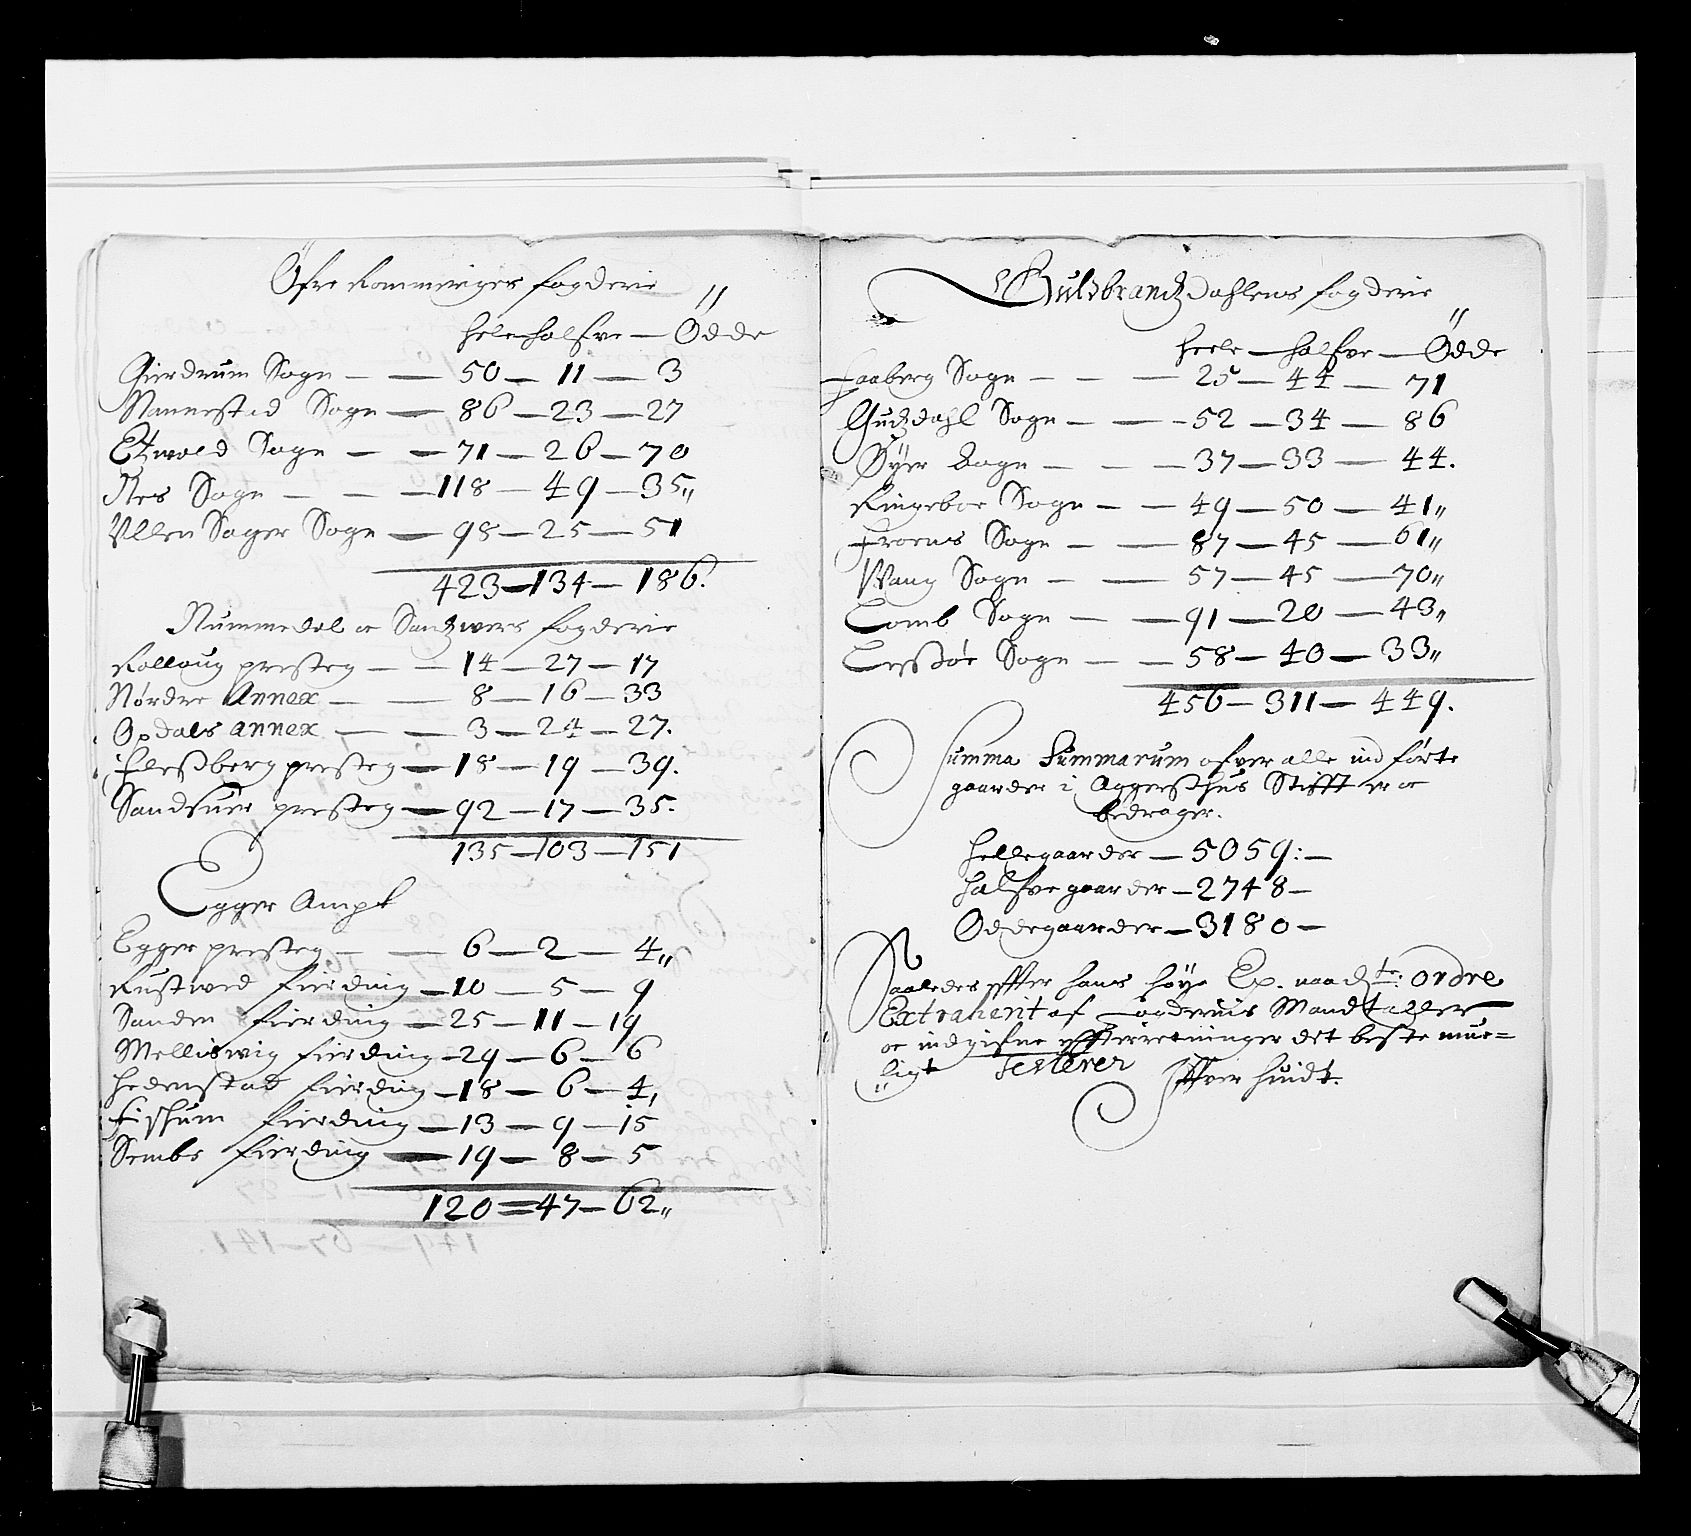 Öfre Rommeriges fogderie
hele halfve — Ödde
Gierdrum Sogn — — 50 — 11 — 3
Nannestad Sogn — 86 — 23 — 27
Etzvold Sogn — — 71 — 26 — 70
Nes Sogn — — — 118 — 49 — 35„
Ullen Sager Sogn — 98 — 25 — 51
423 — 134 — 186.
Nummedal oc Santzwers fogderie
Rolloug presteg — — 14 — 27 — 17
Nørdre Annex — — 8 — 16 — 33
Opdals annex — — 3 — 24 — 27.
Flesßberg presteg — 18 — 19 — 39.
Sandsuer presteg — 92 — 17 — 35.
135 — 103 — 151
Egger Ampt
Egger presteg — — 6 — 2 — 4„
Rustved fierding — 10 — 5 — 9
Sanden fierding — 25 — 11 — 19
Melliswig fierding — 29 — 6 — 6
Hedenstad fierding — 18 — 6 — 4,
Fischum fierding — 13 — 9 — 15
Sembs fierding — 19 — 8 — 5
120 = 47 — 62„
Guldbrantzdahlens fogderie
heele — halfve — Ödde
Faaberg Sogn — — — 25 — 44 — 71
Gudzdahl Sogn — — 52 — 34 — 86
Öyer Sogn — — — 37 — 33 — 44.
Ringeboe Sogn — — 49 — 50 — 41„
Froens Sogn — — 87 — 45 — 61„
Waag Sogn — — 57 — 45 — 70„
Lomb Sogn — — 91 — 20 — 43„
Lessøe Sogn — — 58 — 40 — 33„
456 — 311 — 449.
Summa Summarum ofver alle indførte
gaarder i Aggersßhus Stifft er oc
bedrager.
Hellegaarder — 5059: —
halfve gaarder — 2748 —
Öddegaarder — 3180 —
Saaledes effter hans høye Ex. naadtz: ordre
Extraherit af fogderiis Mandtaller
oc indgifne efterretninger det beste mue=
ligt testerer
Iffver Huidt.